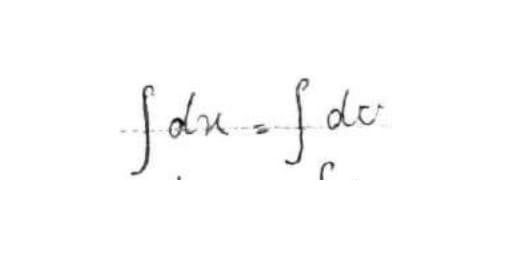 ∫ dx = ∫ dv